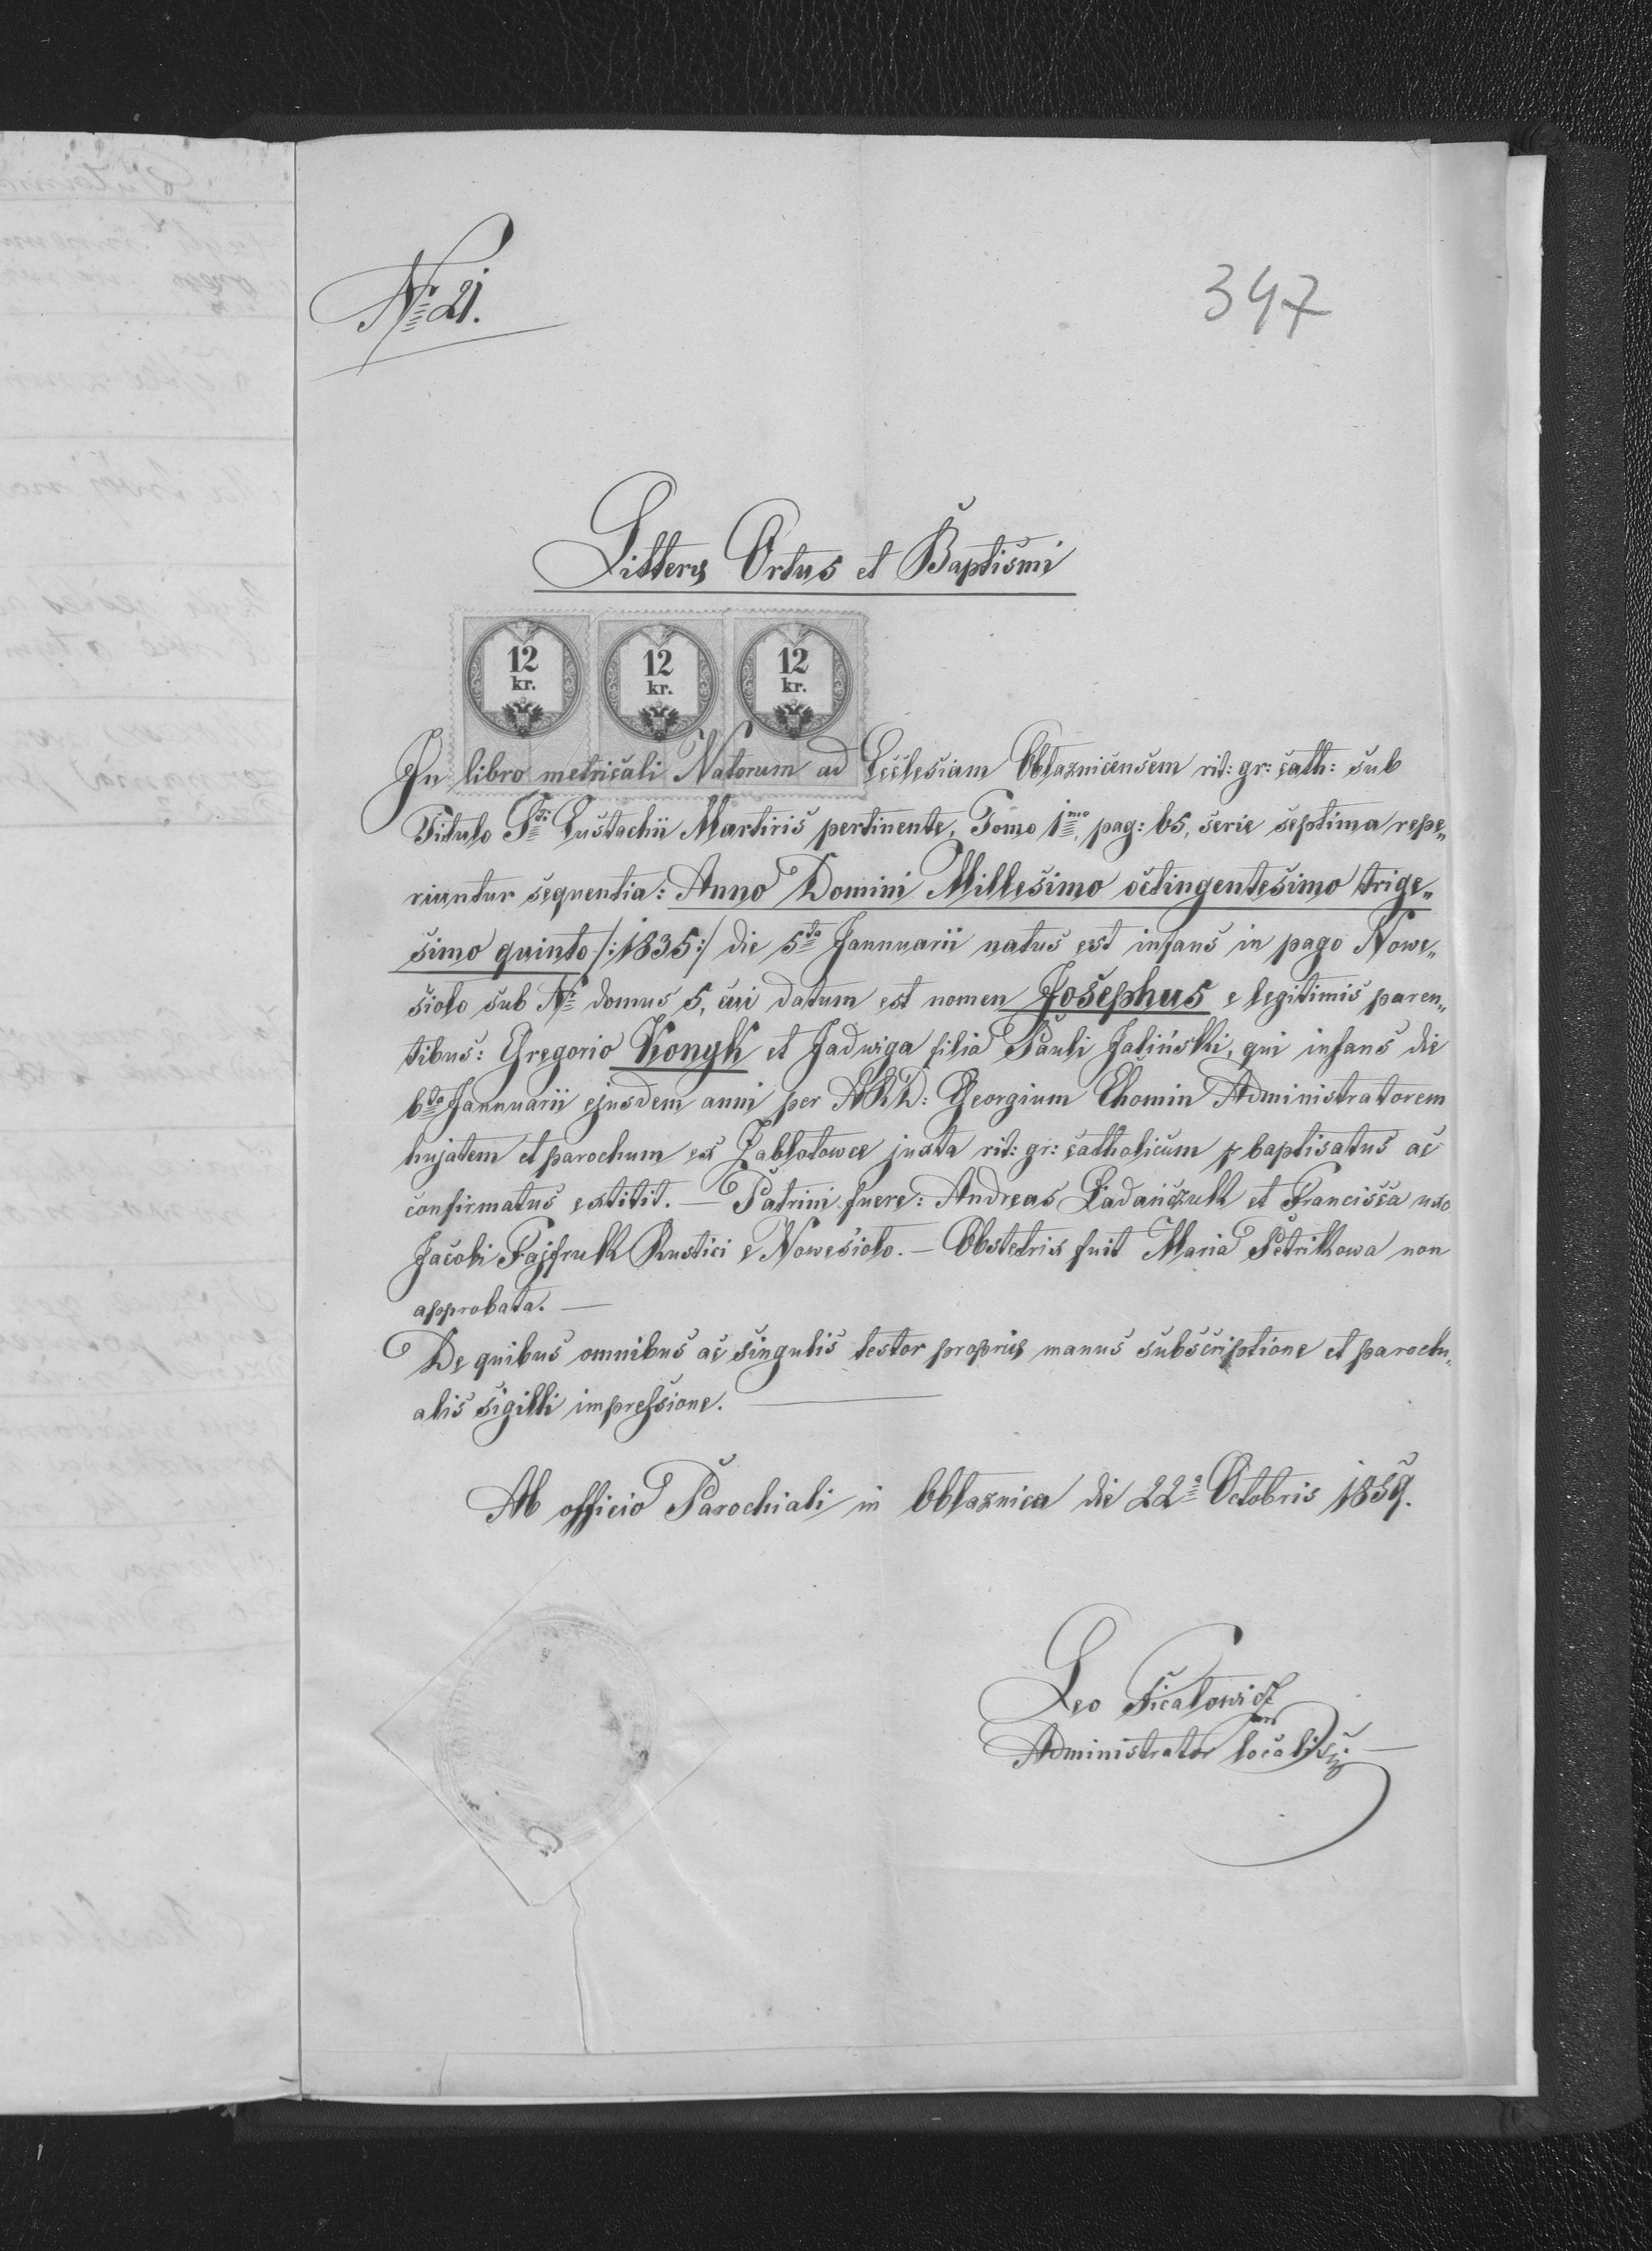 No 21.
347
Litterae Ortus et Baptismi
12 kr.
12 kr.
12 kr.
In libro metricali Natorum ad Ecclesiam Oblaznicensem rit: gr: cath: sub
Titulo Sti Eustachii Martiris pertinente, Tomo 1mo, pag: 65, serie septima repe„
riuntur sequentia: Anno Domini Millesimo octingentesimo trige„
simo quinto /:1835:/ die 5ta Jannuarii natus est infans in pago Nowe„
siolo sub No domus 5, cui datum est nomen Josephus e legitimis paren„
tibus: Gregorio Konyk et Jadwiga filia Pauli Jaliński, qui infans die
6ta Jannuarii ejusdem anni per ARD: Georgium Chomin Administratorem
hujatem et parochum ex Zablotowce juxta rit: gr: catholicum baptisatus ac
confirmatus extitit. — Patrini fuere: Andreas Ladańczuk et Francisca uxo
Jacobi Fajfruk Rustici e Nowesiolo. — Obstetrix fuit Maria Petrikowa non
approbata. —
De quibus omnibus ac singulis testor propriae manus subscriptione et parochi„
alis sigilli impressione. —
Ab officio Parochiali in Oblaznica die 22a Octobris 1859.
Leo
Administrator